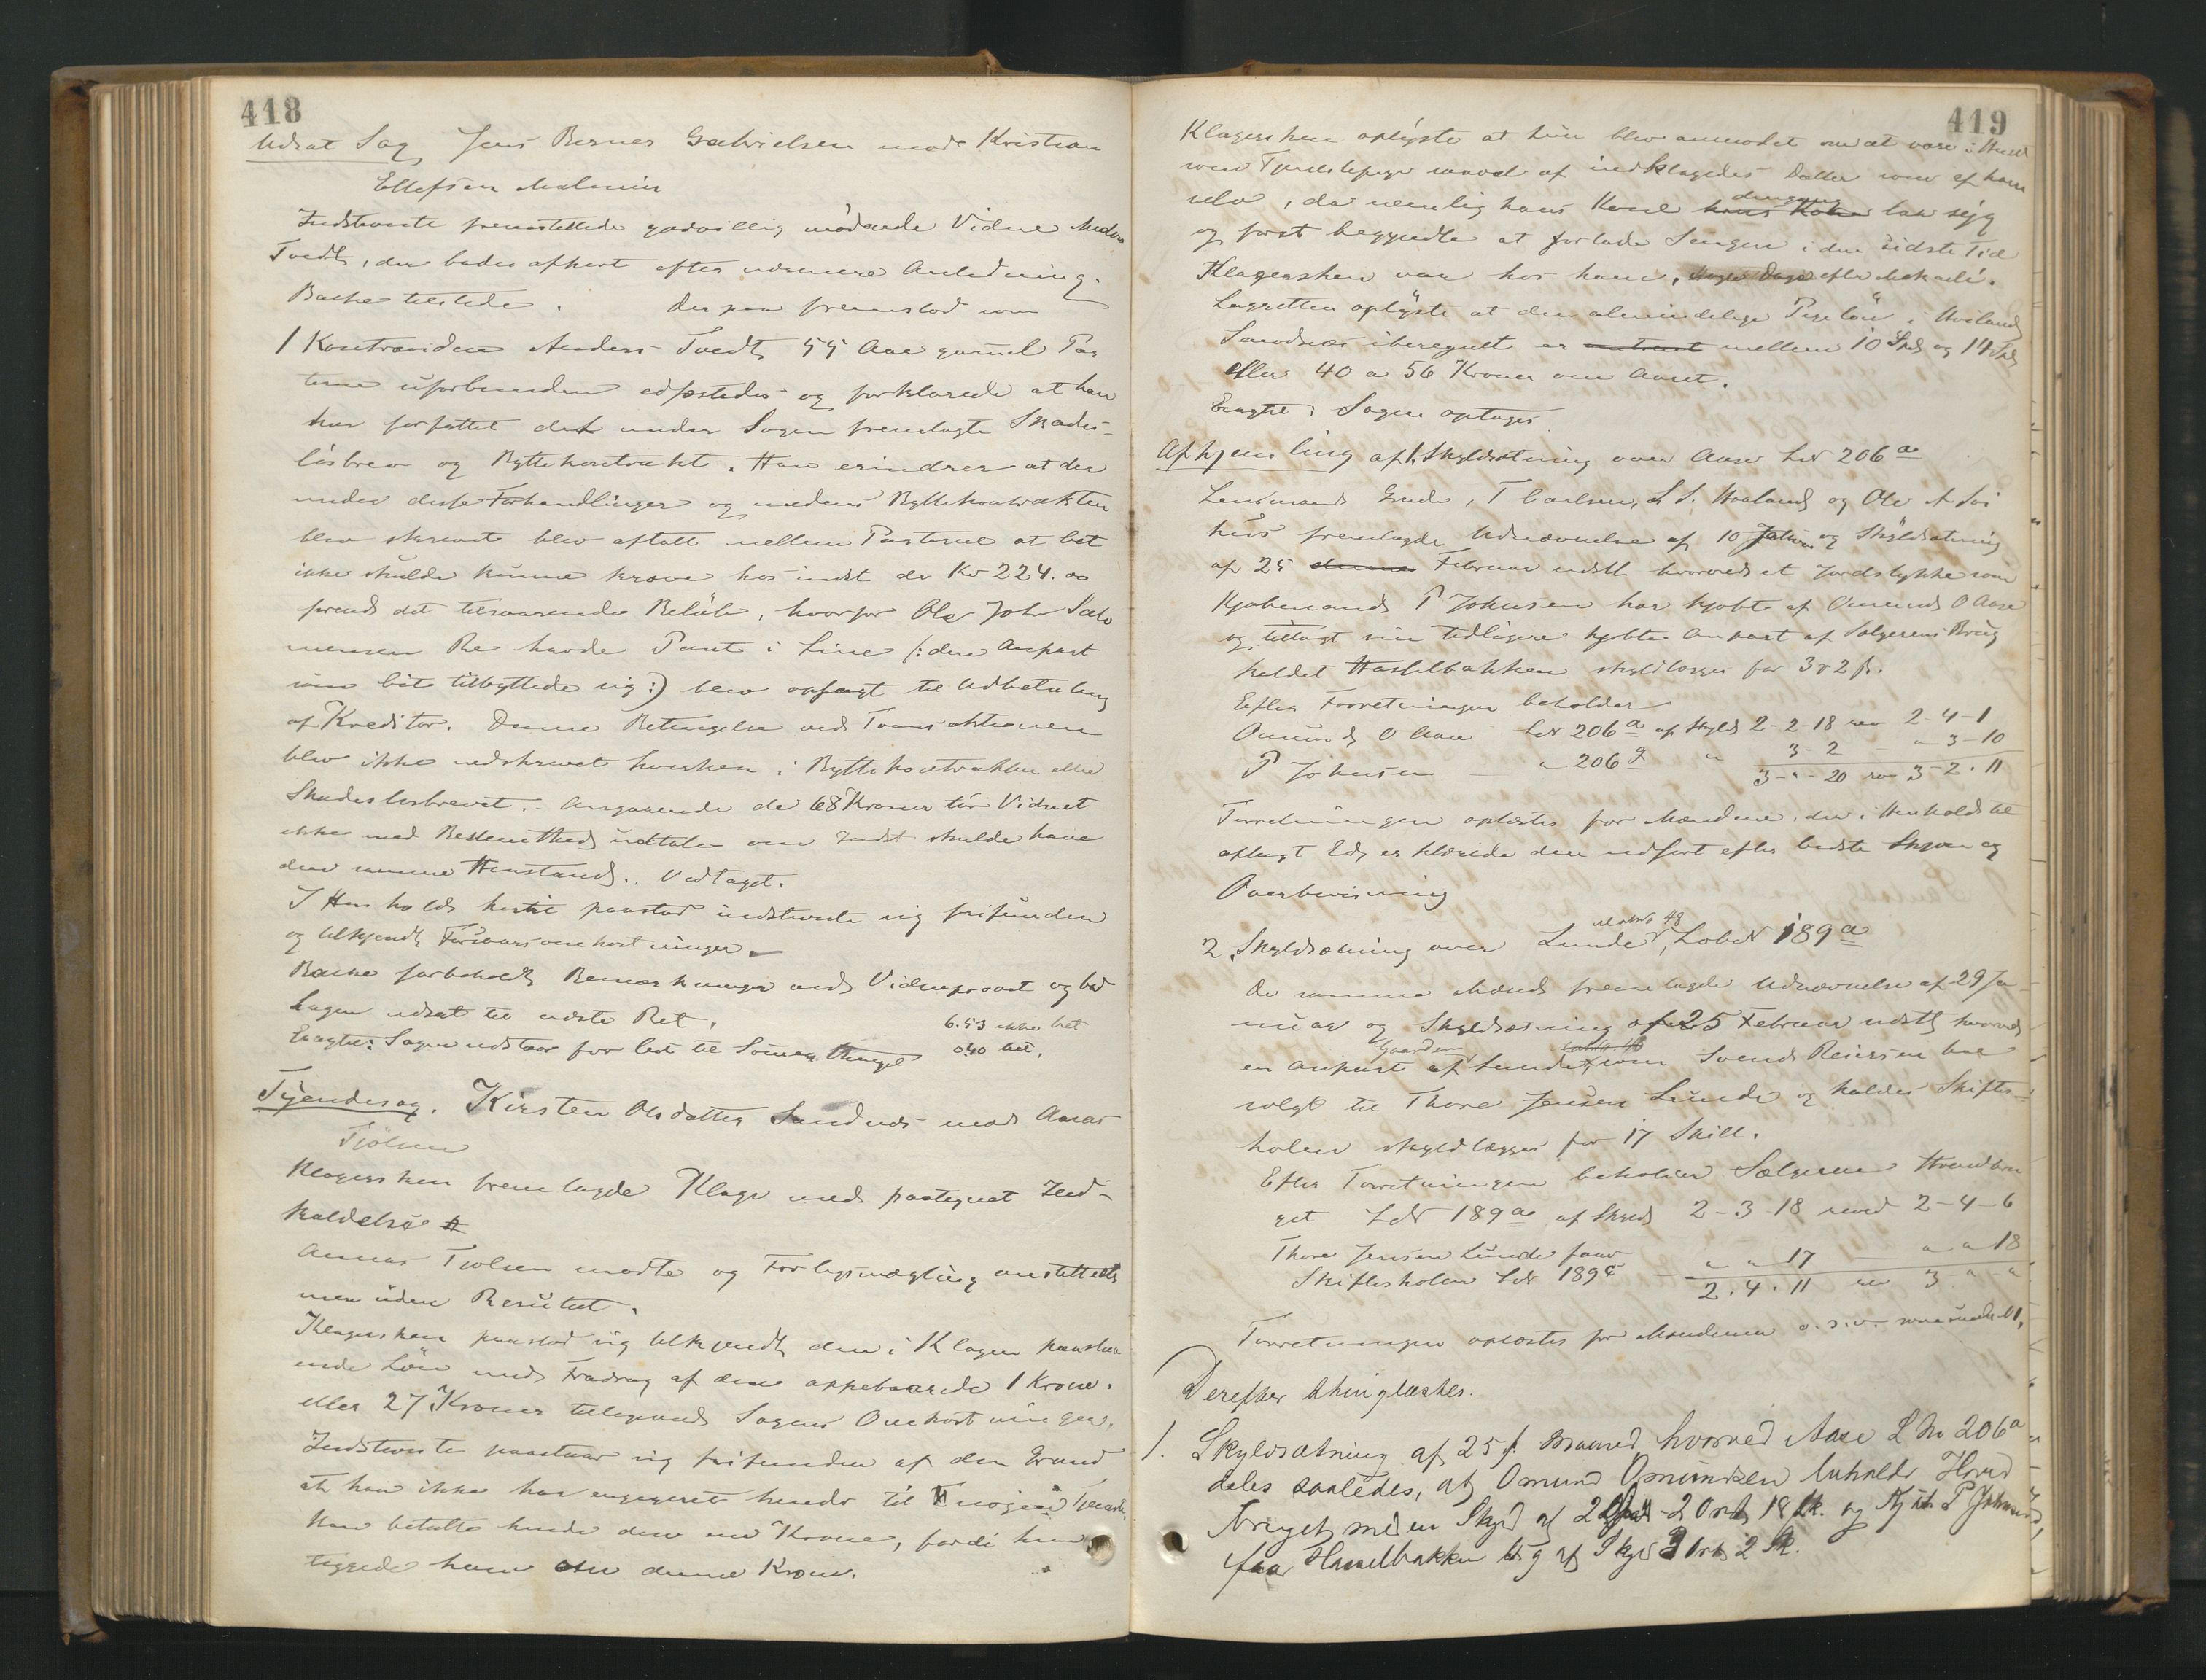 418
Udsat Sag, Jens Berner Gabrielsen mod Kristian
Ellefsen Malmin
Indstevnte fremstillede godvillig mødende Vidne Anders
Tvedt, der bades afhørt efter nærmere Anledning.
Bache tilstede. Der paa fremstod som
1 Kontravidne Anders Tvedt, 55 Aar gammel Par
terne uforbunden edfæstedes og forklarede at han
har forfattet det under Sagen fremlagte Skades-
løsbrev og Byttekontrakt. Han erindrer at der
under disse Forhandlinger og medens Byttekontrakten
blev skrevet blev aftalt mellem Parterne at Cit
ikke skulde kunne kræve hos indst de Kr 224.00
førend det tilsvarende Beløb, hvorfor Ole Johs Salo
monsen Re havde Pant i Line (: den Anpart
som Cit tilbyttede sig :) blev opsagt til Udbetaling
af Kreditor. Denne Betingelse ved Transaktionen
blev ikke nedskrevet hverken i Byttekontrakten eller
Skadesløsbrevet. Angaaende de 68 Kroner tør Vidnet
ikke med Bestemthed udtale om Indst skulde have
den samme Henstand. Vedtaget.
I Henhold hertil paastod indstevnte sig frifunden
og tilkjendt Forsvarsomkostninger.
Bache forbeholdt Bemærkninger ved Vidneprovet og bad
Sagen udsat til næste Ret. 6.53 ikke bet
Eragtet: Sagen udstaar for Cit til Sommerthinget 0.40 bet.
Tyendesag. Kirsten Olsdatter Sandnes mod Aanas
Tjølsen
Klagersken fremlagde Klage med paategnet Ind-
kaldelse
Aanas Tjolsen mødte og Forligsmægling anstilledes
men uden Resultat.
Klagersken paastod sig tilkjendt den i Klagen paastaa
ende Løn med Fradrag af den oppebaarede 1 Krone.
eller 27 Kroner tilligemed Sagens Omkostninger.
Indstevnte paastaar sig frifunden af den Grund
at han ikke har engageret hende til nogen Tjeneste.
Han betalte hende den ene Krone, fordi hun
tiggede ham om denne Krone.
419
Klagersken oplyste at hun blev anmodet om at være i Huset
som Tjenestepige saavel af indklagedes Datter som af ham
selv, da nemlig hans Kone hans Kone dengang laa syg
og først begyndte at forlade Sengen i den sidste Tid
Klagersken var hos ham, nogle Dage efter Mikaeli.
Lagretten oplyste at den almindelige Pigeløn i Høiland
Sandnæs iberegnet er omtrent mellem 10 Spd og 14 Spd
eller 40 a 56 Kroner om Aaret.
Eragtet: Sagen optages.
Afhjemling af 1. Skyldsætning over Aase LN 206 a
Lensmand Grude, T Carlsen, S. S. Haaland og Ole A Soi
hus fremlagde Udnævnelse af 10 Januar og Skyldsætning
af 25 denne Februar udstl hvorved et Jordstykke som
Kjøbmand P Johnsen har kjøbt af Omund O Aase
og tillagt sin tidligere kjøbte Anpart af Sælgerens Brug
kaldet Hasselbakken skyldlægges for 3 # 2 s.
Efter Forretningen beholder
Omund O Aase LN 206 a af Skyld 2-2-18 rev 2-4-1
P Johnsen " 206 g " 3-2 " 3-10
3-"-20 rev 3-2.11
Forretningen oplæstes for Mændene, der i Henhold til
aflagt Ed, erklærede den udført efter bedste Skjøn og
Overbevisning
2. Skyldsætning over Lunde Matr 48, LobN 189 a
De samme Mænd fremlagde Udnævnelse af 29 Ja
nuar og Skyldsætning af 25 Februar udstl hvorved
en Anpart af Gaarden Lunde som Svend Reiersen har
solgt til Thore Jensen Lunde og kaldes Skiftes-
holen skyldlægges for 17 Skill.
Efter Forretningen beholder Sælgeren Hovedbru
get LN 189 a af Skyld 2-3-18 revd 2-4-6
Thore Jensen Lunde faar
Skiftesholen LN 189 c " " 17 " " 18
2.4.11 rev 3 " "
Forretningen oplæstes for Mændene o. s. v. som under N 1.
Derefter thinglæstes.
1. Skyldsætning af 25 f. Maaned hvorved Aase L No 206 a
deles saaledes, at Omund Omundsen beholdr Hoved
bruget med en Skyld af 2 Daler - 2 Ort 18 Sk. og Kjbm P Johnsen,
faar Hasselbakken 206 g af Skyld 3 Ort 2 Sk.